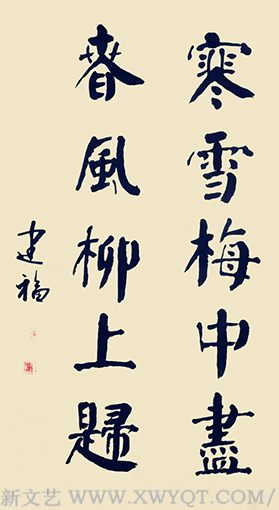 寒雪梅中盡
春風柳上歸
建福
新文艺 WWW.XWYQT.COM